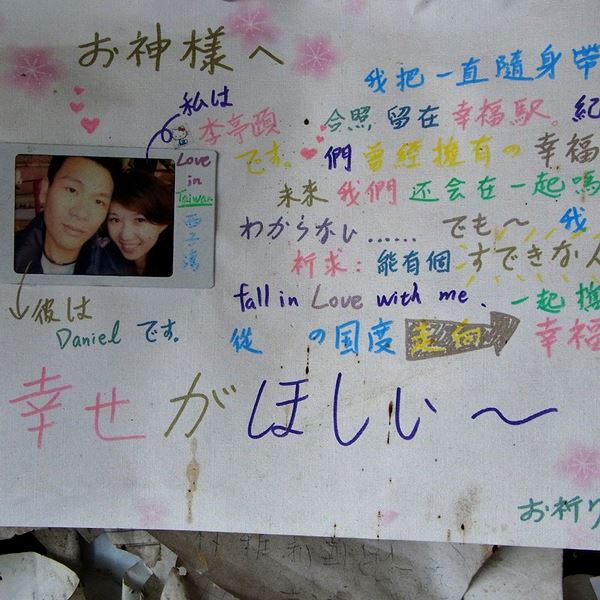 お神様へ
我把一直隨身帶
私は
李亭頤
合照 留在 幸福駅。紀
Love
in
Taiwan
西子灣
です。 們 曾經擁有の 幸福
未來 我們 还会在一起嗎
わからない...... でも〜 我
祈求：能有個 すできな人
彼は
Daniel です。
fall in Love with me. 一起擋
從 の国度 走向 幸福
幸せがほしい〜
お祈り